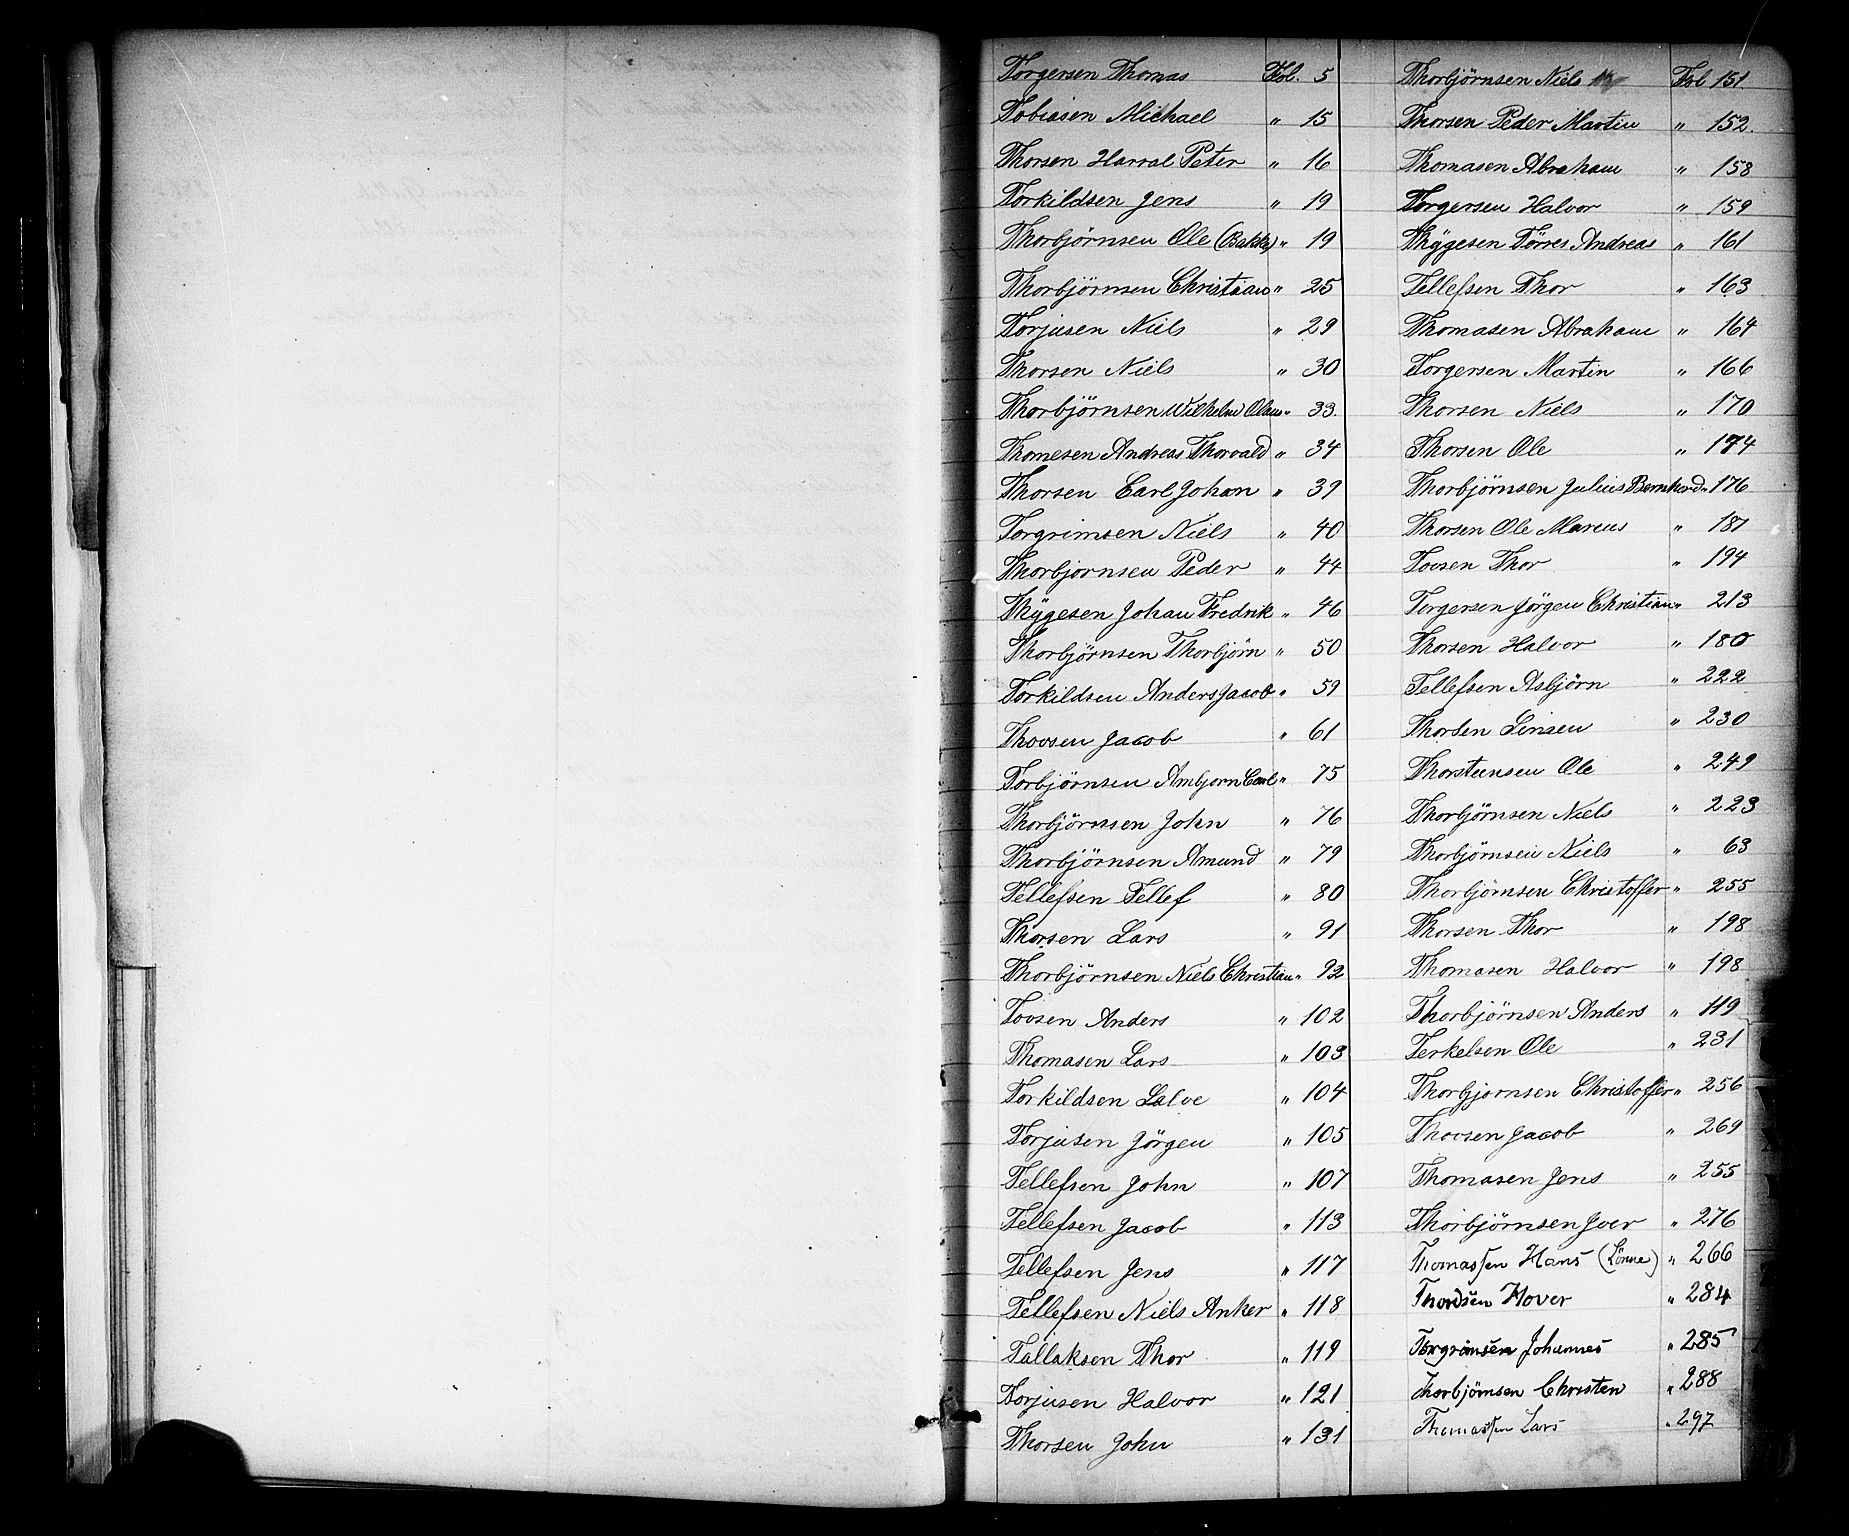 Torgersen Thomas Fol. 5
Tobiasen Michael " 15
Thorsen Harral Peter " 16
Torkildsen Jens " 19
Thorbjörnsen Ole (Bakke) " 19
Thorbjörnsen Christian " 25
Torjusen Niels " 29
Thorsen Niels " 30
Thorbjörnsen Wilhelm Olaus " 33.
Thomesen Andreas Thorvald " 34
Thorsen Carl Johan " 39
Torgrimsen Niels " 40
Thorbjornsen Peder " 44
Thygesen Johan Fredrik " 46
Thorbjörnsen Thorbjörn " 50
Torkildsen Anders Jacob " 59
Thovsen Jacob " 61
Torbjörnsen Arnbjorn Carl " 75
Thorbjörnsen John " 76
Thorbjörnsen Amund " 79
Tellefsen Tellef " 80
Thorsen Lars " 91
Thorbjörnsen Niels Christian " 92
Tovsen Anders " 102
Thomasen Lars " 103
Torkildsen Salve " 104
Torjusen Jörgen " 105
Tellefsen John " 107
Tellefsen Jacob " 113
Tellefsen Jens " 117
Tellefsen Niels Anker " 118
Tallaksen Thor " 119
Torjusen Halvor " 121
Thorsen John " 131
Thorbjörnsen Niels Fol 151.
Thorsen Peder Martin " 152.
Thomasen Abraham " 158
Torgersen Halvor " 159
Thygesen Törres Andreas " 161
Tellefsen Thor " 163
Thomasen Abraham " 164
Torgersen Martin " 166
Thorsen Niels " 170
Thorsen Ole " 174
Thorbjörnsen Julius Bernhard " 176
Thorsen Ole Marcus " 187
Tovsen Thor " 194
Torgersen Jörgen Christian " 213
Thorsen Halvor " 180
Tellefsen Asbjörn " 222
Thorsen " 230
Thorstensen Ole " 249
Thorbjörnsen Niels " 223
Thorbjörnsen Niels " 63
Thorbjörnsen Christoffer " 255
Thorsen Thor " 198
Thomasen Halvor " 198
Thorbjörnsen Anders " 119
Terkelsen Ole " 231
Thorbjornsen Christoffer " 256
Thovsen Jacob " 269
Thomasen Jens " 255
Thorbjörnsen Iver " 276
Thomassen Hans (Lönne) " 266
Thordsen Hover " 284
Torgrimsen Johannes " 285
Thorbjörnsen Christen " 288
Thomassen Lars " 297